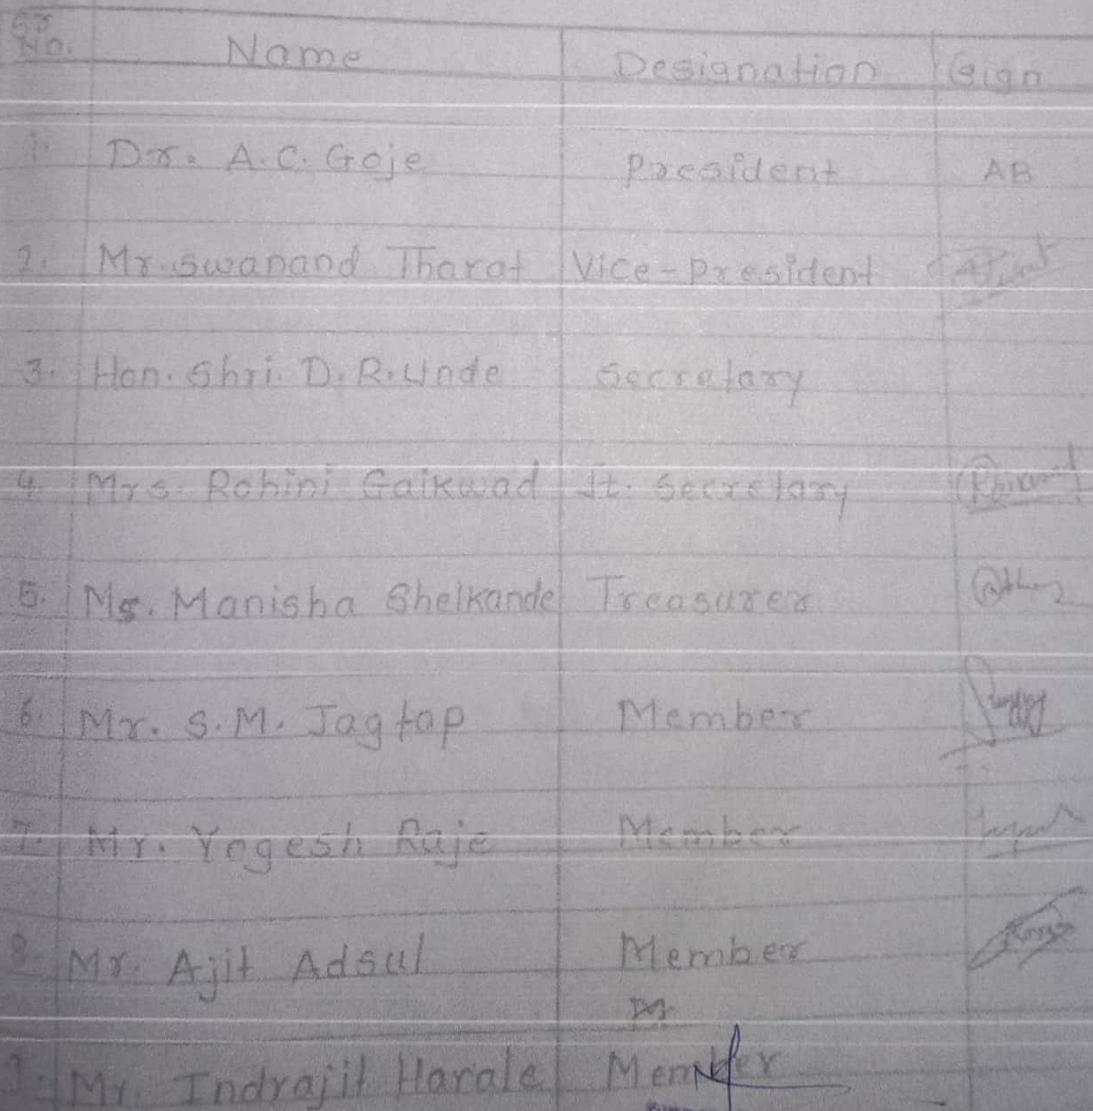 Sr. No. Name Designation Sign
1. Dr. A.C. Goje President AB
2. Mr. Swanand Thorat Vice-President
3. Hon. Shri. D.R. Unde Secretary
4. Mrs. Rohini Gaikwad Jt. Secretary
5. Ms. Manisha Shelkande Treasurer
6. Mr. S.M. Jagtap Member
7. Mr. Yogesh Raje Member
8. Mr. Ajit Adsul Member
9. Mr. Indrajit Harale Member